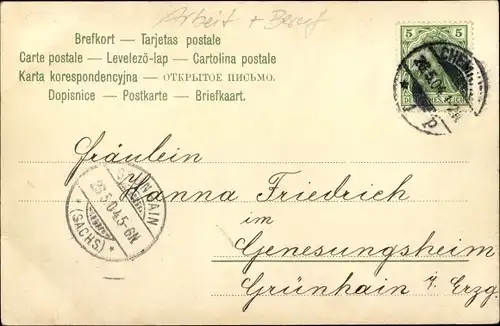 Arbeit + Beruf
Brefkort — Tarjetas postale
Carte postale — Levelező-lap — Cartolina postale
Karta korespondencyjna — ОТКРЫТОЕ ПИСЬМО.
Dopisnice — Postkarte — Briefkaart.
5 5
DEUTSCHES REICH
CHEMNITZ
Fräulein
Hanna Friedrich
im
Genesungsheim
Grünhain i. Erzg.
GRÜNHAIN
5-6N.
* (SACHS) *